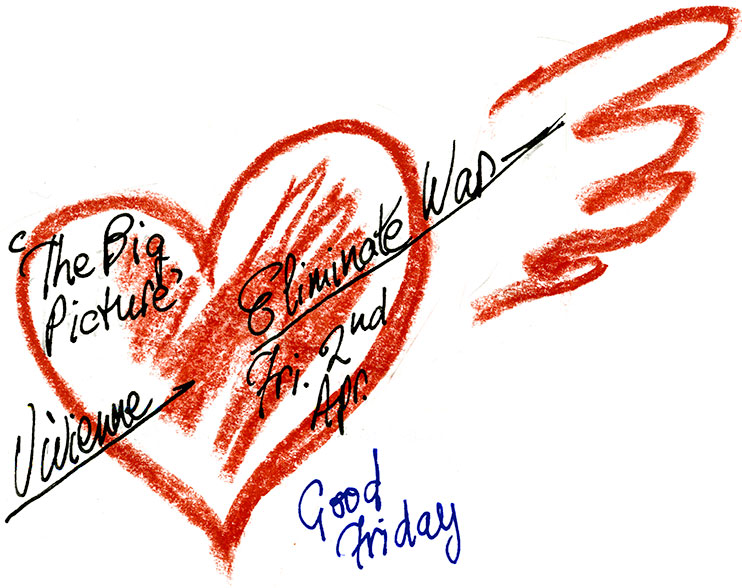 'The Big
Picture'
Eliminate War
Fri. 2nd
Apr.
Vivienne
Good
Friday